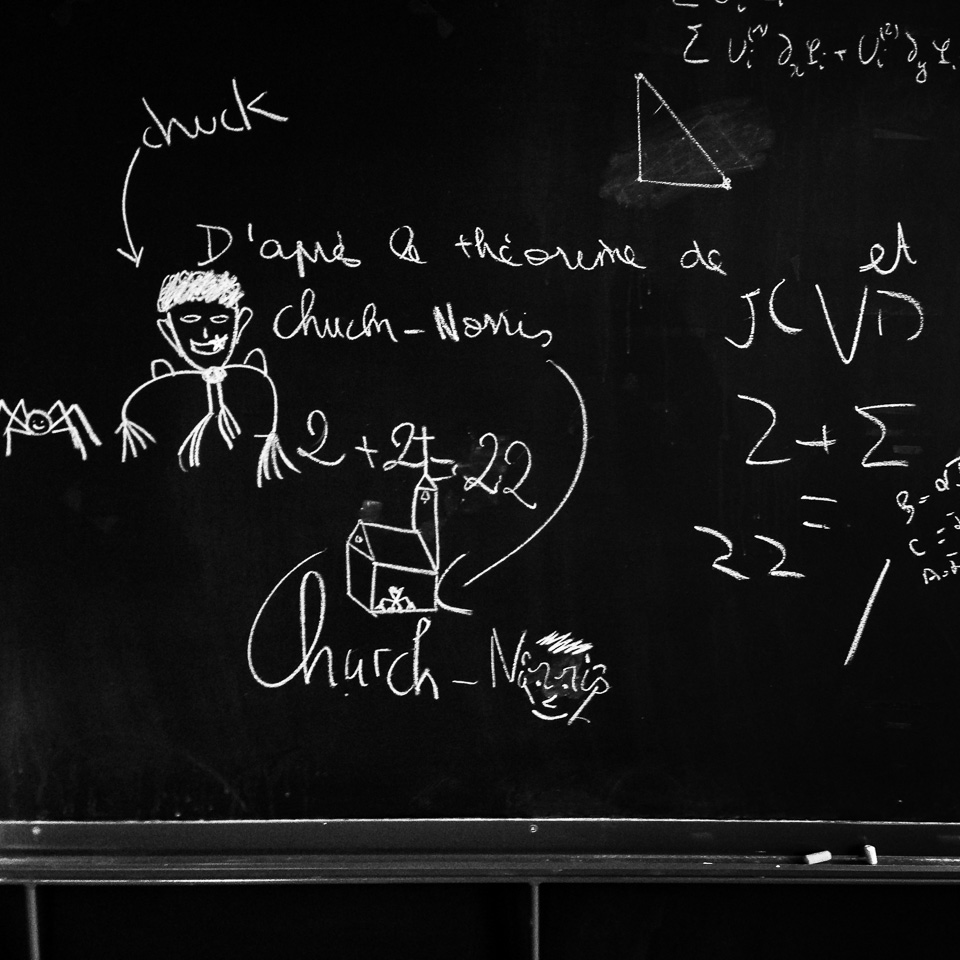 Σ U_i^(1) ∂_x φ_i + U_i^(2) ∂_y φ_i
chuck
D'après le théorème de
et
Chuck-Norris
JCVD
2+2=22
2+Σ
=
22
B=
C=
A=
Church-Norris